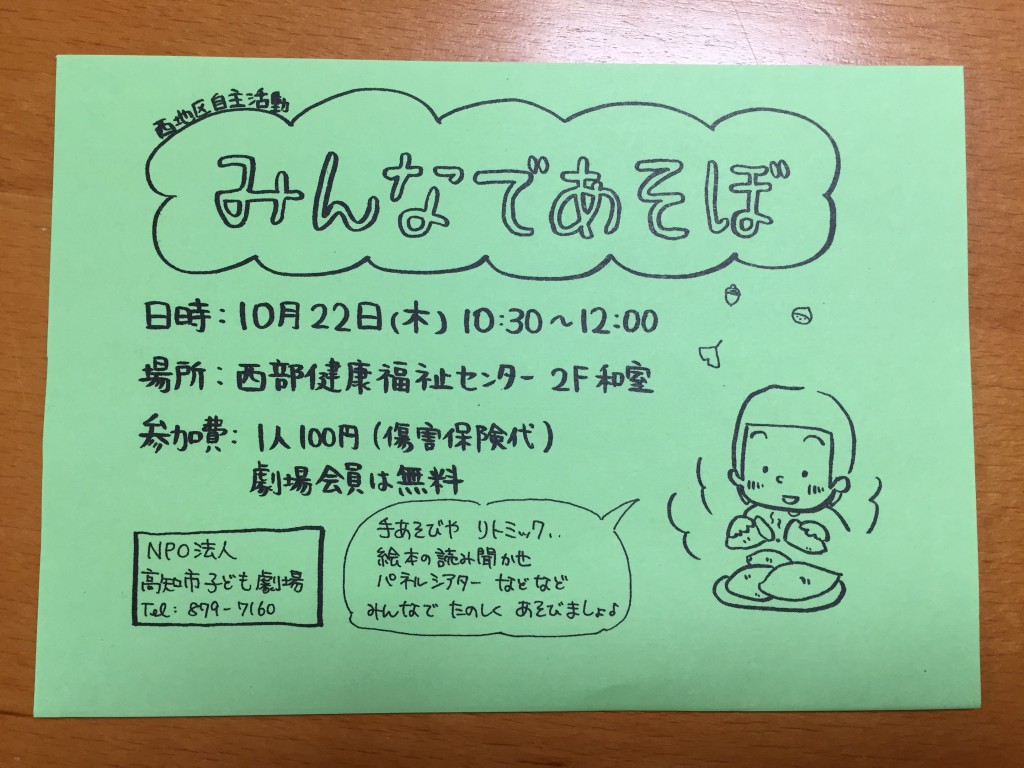 西地区自主活動
みんなであそぼ
日時：10月22日(木) 10:30〜12:00
場所：西部健康福祉センター 2F 和室
参加費：1人100円(傷害保険代)
劇場会員は無料
NPO法人
高知市子ども劇場
Tel：879-7160
手あそびや リトミック、、
絵本の読み聞かせ
パネルシアター などなど
みんなで たのしく あそびましょ♪